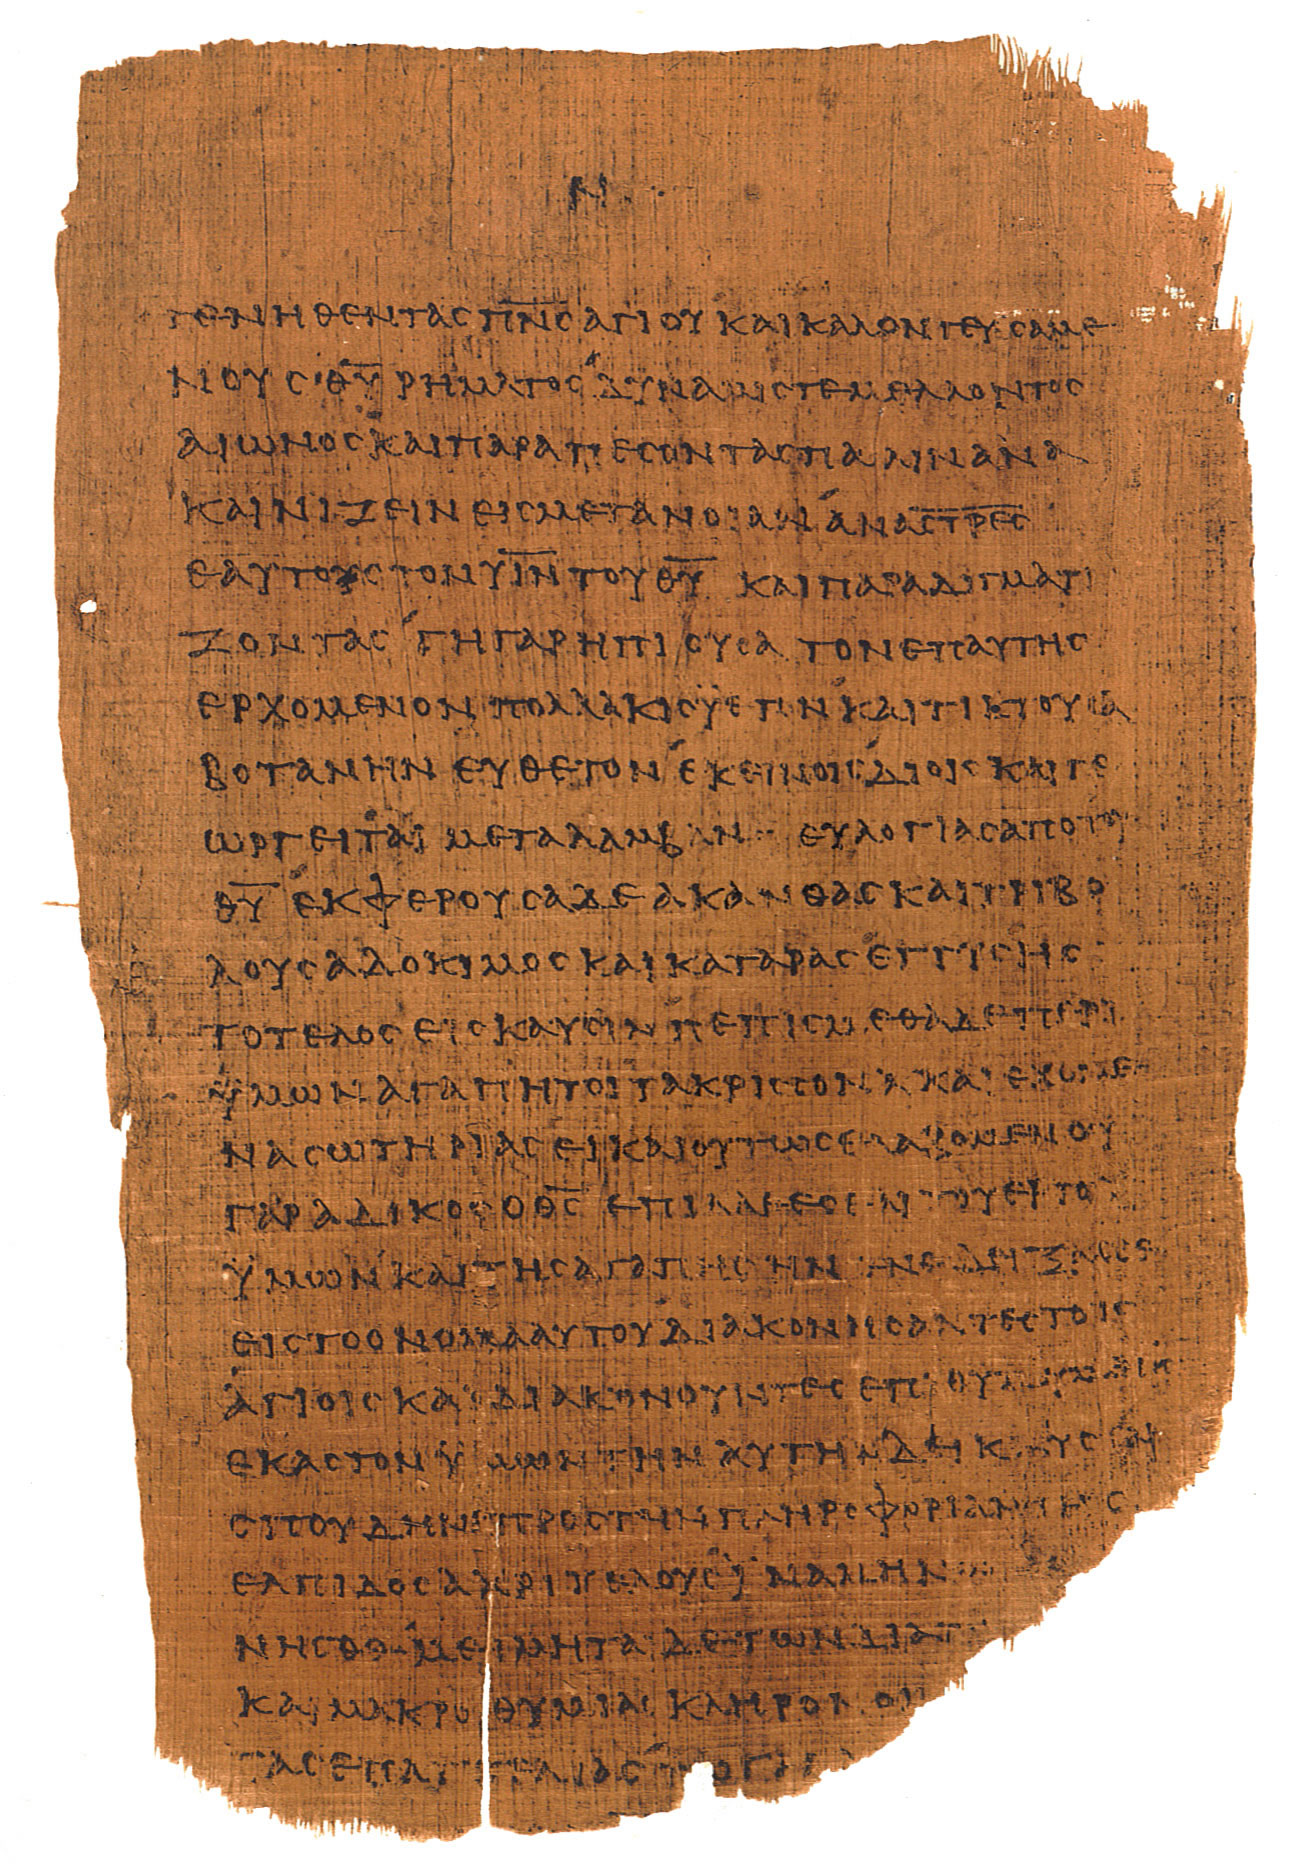 Ν
ΓΕΝΗΘΕΝΤΑΣ Π̅Ν̅Σ̅ ΑΓΙΟΥ ΚΑΙ ΚΑΛΟΝ ΓΕΥΣΑΜΕ
ΝΟΥΣ Θ̅Υ̅ ΡΗΜΑΤΟΣ ΔΥΝΑΜΙΣ ΤΕ ΜΕΛΛΟΝΤΟΣ
ΑΙΩΝΟΣ ΚΑΙ ΠΑΡΑΠΕΣΟΝΤΑΣ ΠΑΛΙΝ ΑΝΑ
ΚΑΙΝΙΖΕΙΝ ΕΙΣ ΜΕΤΑΝΟΙΑΝ ΑΝΑΣ̅Τ̅Ρ̅Ε̅Σ̅
ΕΑΥΤΟΥΣ ΤΟΝ Υ̅Ι̅Ν̅ ΤΟΥ Θ̅Υ̅ ΚΑΙ ΠΑΡΑΔΙΓΜΑΤΙ
ΖΟΝΤΑΣ ΓΗ ΓΑΡ Η ΠΙΟΥΣΑ ΤΟΝ ΕΠ ΑΥΤΗΣ
ΕΡΧΟΜΕΝΟΝ ΠΟΛΛΑΚΙΣ ΫΕΤΟΝ ΚΑΙ ΤΙΚΤΟΥΣΑ
ΒΟΤΑΝΗΝ ΕΥΘΕΤΟΝ ΕΚΕΙΝΟΙΣ ΔΙ ΟΙΣ ΚΑΙ ΓΕ
ΩΡΓΕΙΤΑΙ ΜΕΤΑΛΑΜΒΑΝ ΕΥΛΟΓΙΑΣ ΑΠΟ ΤΟΥ
Θ̅Υ̅ ΕΚΦΕΡΟΥΣΑ ΔΕ ΑΚΑΝΘΑΣ ΚΑΙ ΤΡΙΒΟ
ΛΟΥΣ ΑΔΟΚΙΜΟΣ ΚΑΙ ΚΑΤΑΡΑΣ ΕΓΓΥΣ ΗΣ
ΤΟ ΤΕΛΟΣ ΕΙΣ ΚΑΥΣΙΝ ΠΕΠΙΣΜΕΘΑ ΔΕ ΠΕΡΙ
ΫΜΩΝ ΑΓΑΠΗΤΟΙ ΤΑ ΚΡΙΣΣΟΝΑ ΚΑΙ ΕΧΟΜΕ
ΝΑ ΣΩΤΗΡΙΑΣ ΕΙ ΚΑΙ ΟΥΤΩΣ ΕΛΑΛΟΥΜΕΝ ΟΥ
ΓΑΡ ΑΔΙΚΟΣ Ο Θ̅Σ̅ ΕΠΙΛΑΘΕΣΕΝ ΤΟΥ ΕΡΓΟΥ
ΫΜΩΝ ΚΑΙ ΤΗΣ ΑΓΑΠΗΣ ΗΝ ΕΝΕΔΙΞΑΣΘΕ
ΕΙΣ ΤΟ ΟΝΟΜΑ ΑΥΤΟΥ ΔΙΑΚΟΝΗΣΑΝΤΕΣ ΤΟΙΣ
ΑΓΙΟΙΣ ΚΑΙ ΔΙΑΚΟΝΟΥΝΤΕΣ ΕΠΙΘΥΜΟΥΜΕΝ
ΕΚΑΣΤΟΝ ΫΜΩΝ ΤΗΝ ΑΥΤΗΝ
ΣΠΟΥΔΗΝ ΠΡΟΣ ΤΗΝ ΠΛΗΡΟΦΟΡΙΑΝ ΤΗΣ
ΕΛΠΙΔΟΣ ΑΧΡΙ ΤΕΛΟΥΣ ΙΝΑ ΜΗ Ν
ΝΗΣΘΕ ΜΕΙΜΗΤΑΙ ΔΕ ΤΩΝ ΔΙΑ Π
ΚΑΙ ΜΑΚΡΟΘΥΜΙΑΣ ΚΛΗΡΟΝΟΜ
ΤΑΣ ΕΠΑΓΓΕΛΙΑΣ ΤΩ ΓΑΡ